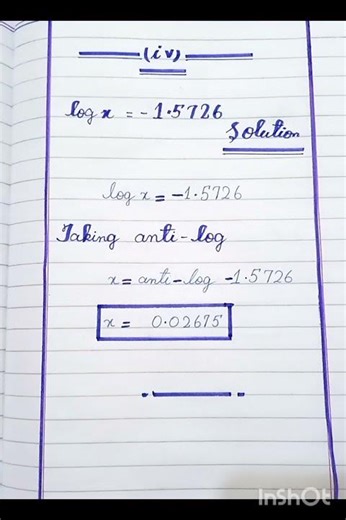 (iv)
log x = -1.5726
Solution
log x = -1.5726
Taking anti-log
x = anti-log -1.5726
x = 0.02675
InShOt